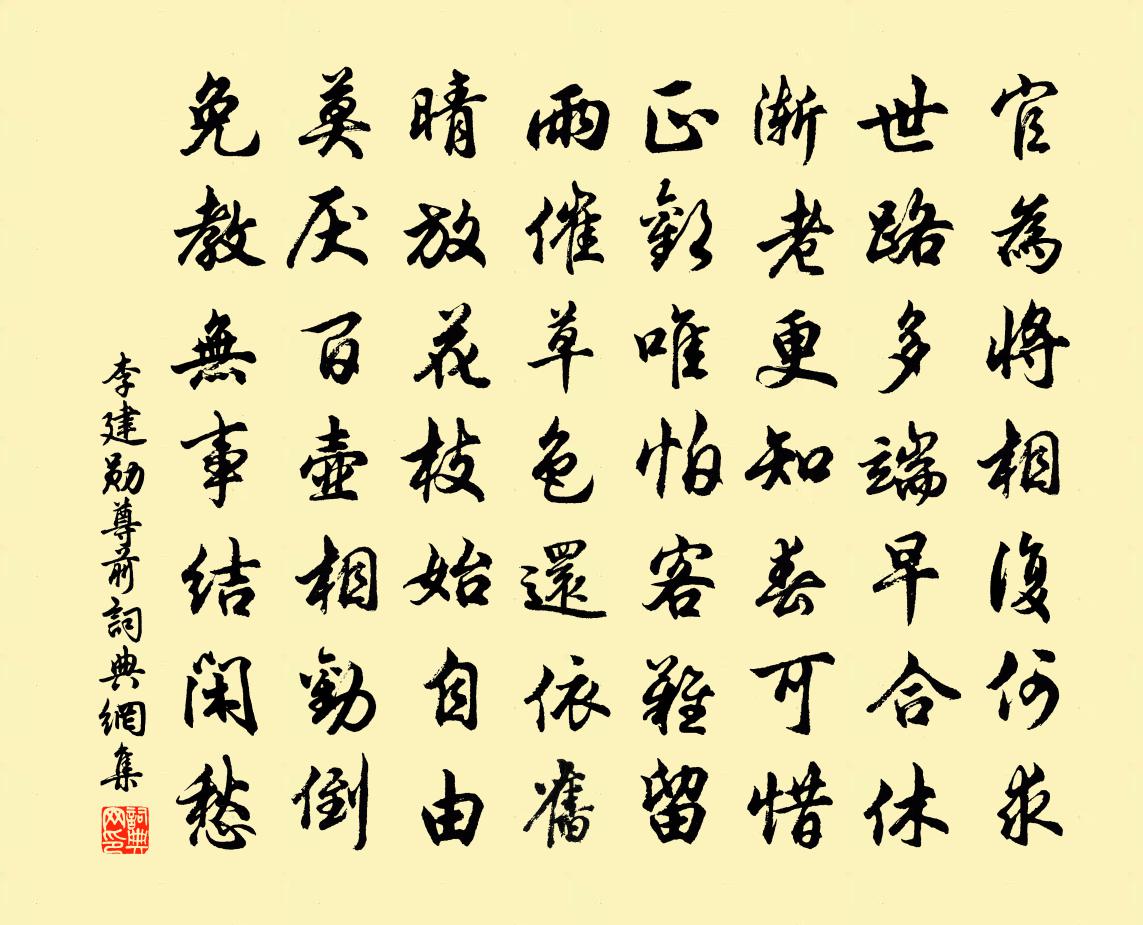 官為將相復何求
世路多端早合休
漸老更知春可惜
正歡唯怕客難留
雨催草色還依舊
晴放花枝始自由
莫厌百壺相勸倒
免教無事結閑愁
李建勛尊前詞典網集
詞典网印